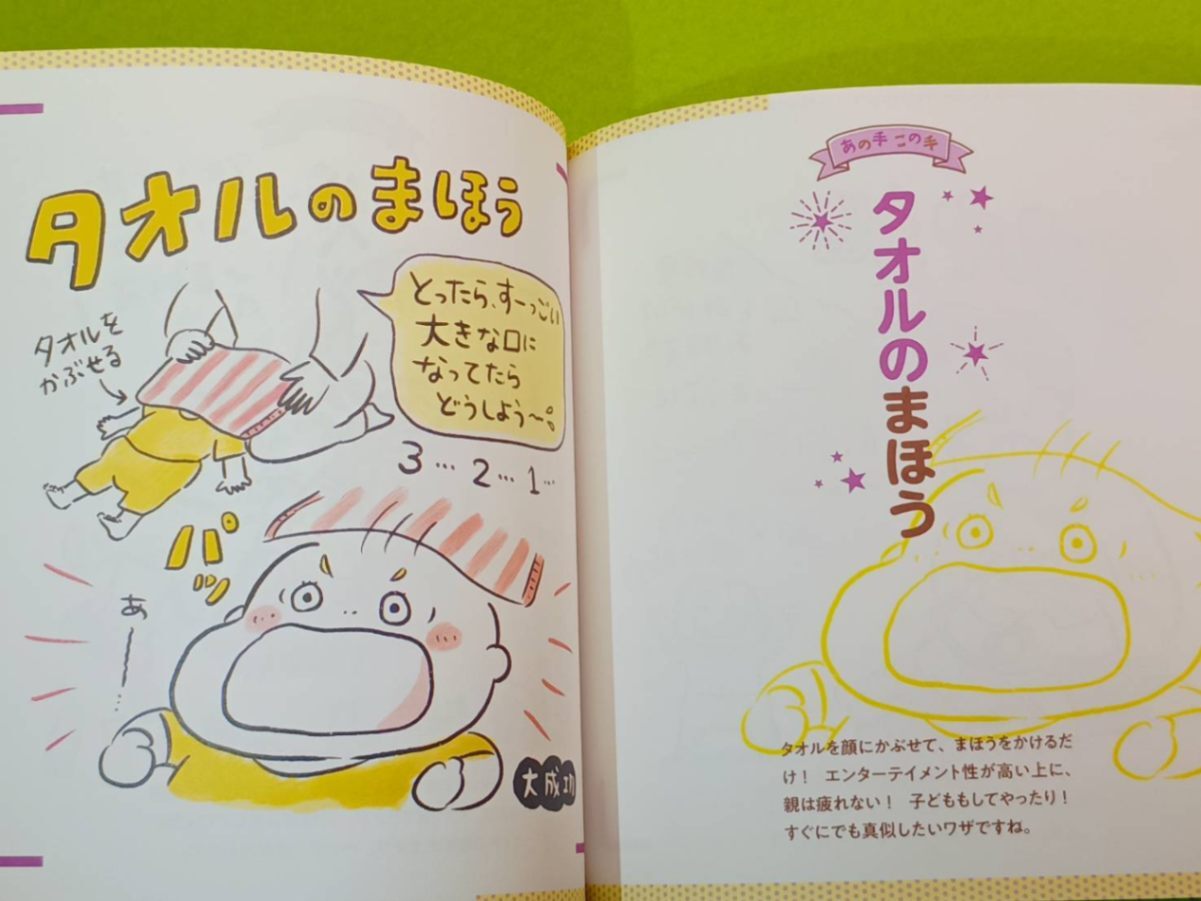 タオルのまほう
タオルを
かぶせる
とったら、すーっごい
大きな口に
なってたら
どうしよう〜。
3… 2… 1…
パッ
あー…
大成功
あの手この手
タオルのまほう
タオルを顔にかぶせて、まほうをかけるだ
け！ エンターテイメント性が高い上に、
親は疲れない！ 子どももしてやったり！
すぐにでも真似したいワザですね。